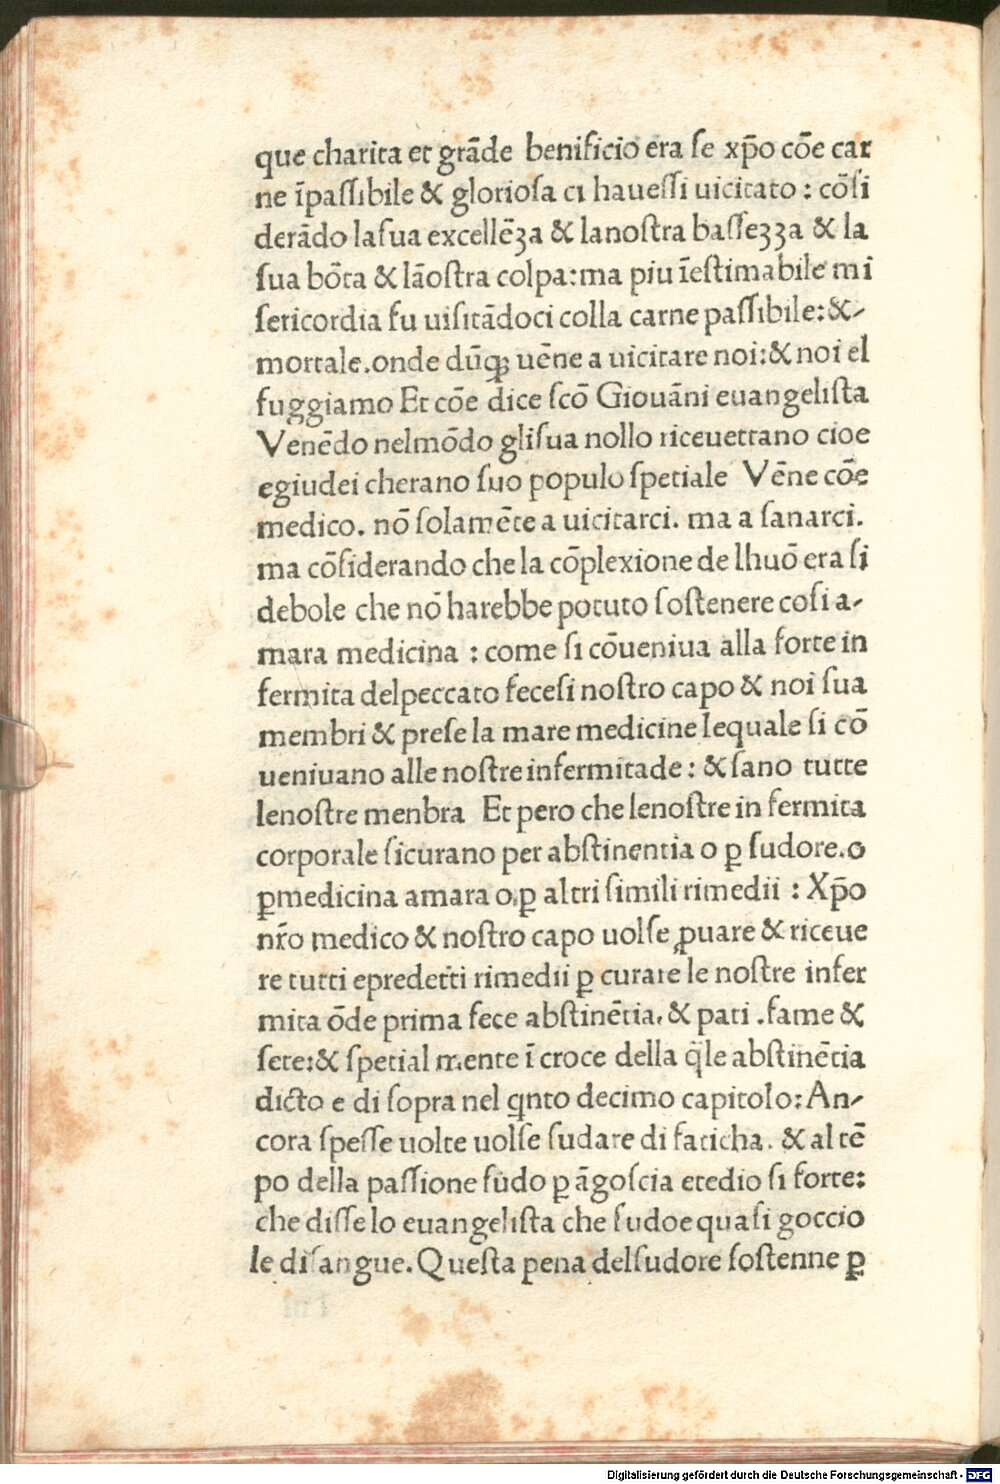 que charita et grāde benificio era ſe xp̄o cōe car
ne īpaſſibile & glorioſa ci haueſſi uicitato : cōſi
derādo laſua excellēʒa & lanoſtra baſſeʒʒa & la
ſua bōta & lāoſtra colpa:ma piu īeſtimabile mi
ſericordia fu uiſitādoci colla carne paſſibile:&-
mortale.onde dūqꝫ uēne a uicitare noi:& noi el
fuggiamo Et cōe dice ſcō Giouāni euangeliſta
Venēdo nelmōdo gliſua nollo riceuettano cioe
egiudei cherano ſuo populo ſpetiale Vēne cōe
medico. nō ſolamēte a uicitarci. ma a ſanarci.
ma cōſiderando che la cōplexione de lhuō era ſi
debole che nō harebbe potuto ſoſtenere coſi a-
mara medicina : come ſi cōueniua alla forte in
fermita delpeccato feceſi noſtro capo & noi ſua
membri & preſe la mare medicine lequale ſi cō
ueniuano alle noſtre infermitade : & ſano tutte
lenoſtre menbra Et pero che lenoſtre in fermita
corporale ſicurano per abſtinentia o ꝑ ſudore.o
ꝑmedicina amara o.ꝑ altri ſimili rimedii : Xp̄o
nr̄o medico & noſtro capo uolſe ꝓuare & riceue
re tutti epredetti rimedii ꝑ curare le noſtre infer
mita ōde prima fece abſtinētia. & pati .fame &
ſete:& ſpetial mente ī croce della q̄le abſtinētia
dicto e di ſopra nel qnto decimo capitolo: An-
cora ſpeſſe uolte uolſe ſudare di faticha. & al tē
po della paſſione ſudo ꝑ āgoſcia etedio ſi forte:
che diſſe lo euangeliſta che ſudoe quaſi goccio
le di ſangue. Queſta pena delſudore ſoſtenne ꝑ
Digitalisierung gefördert durch die Deutsche Forschungsgemeinschaft - DFG